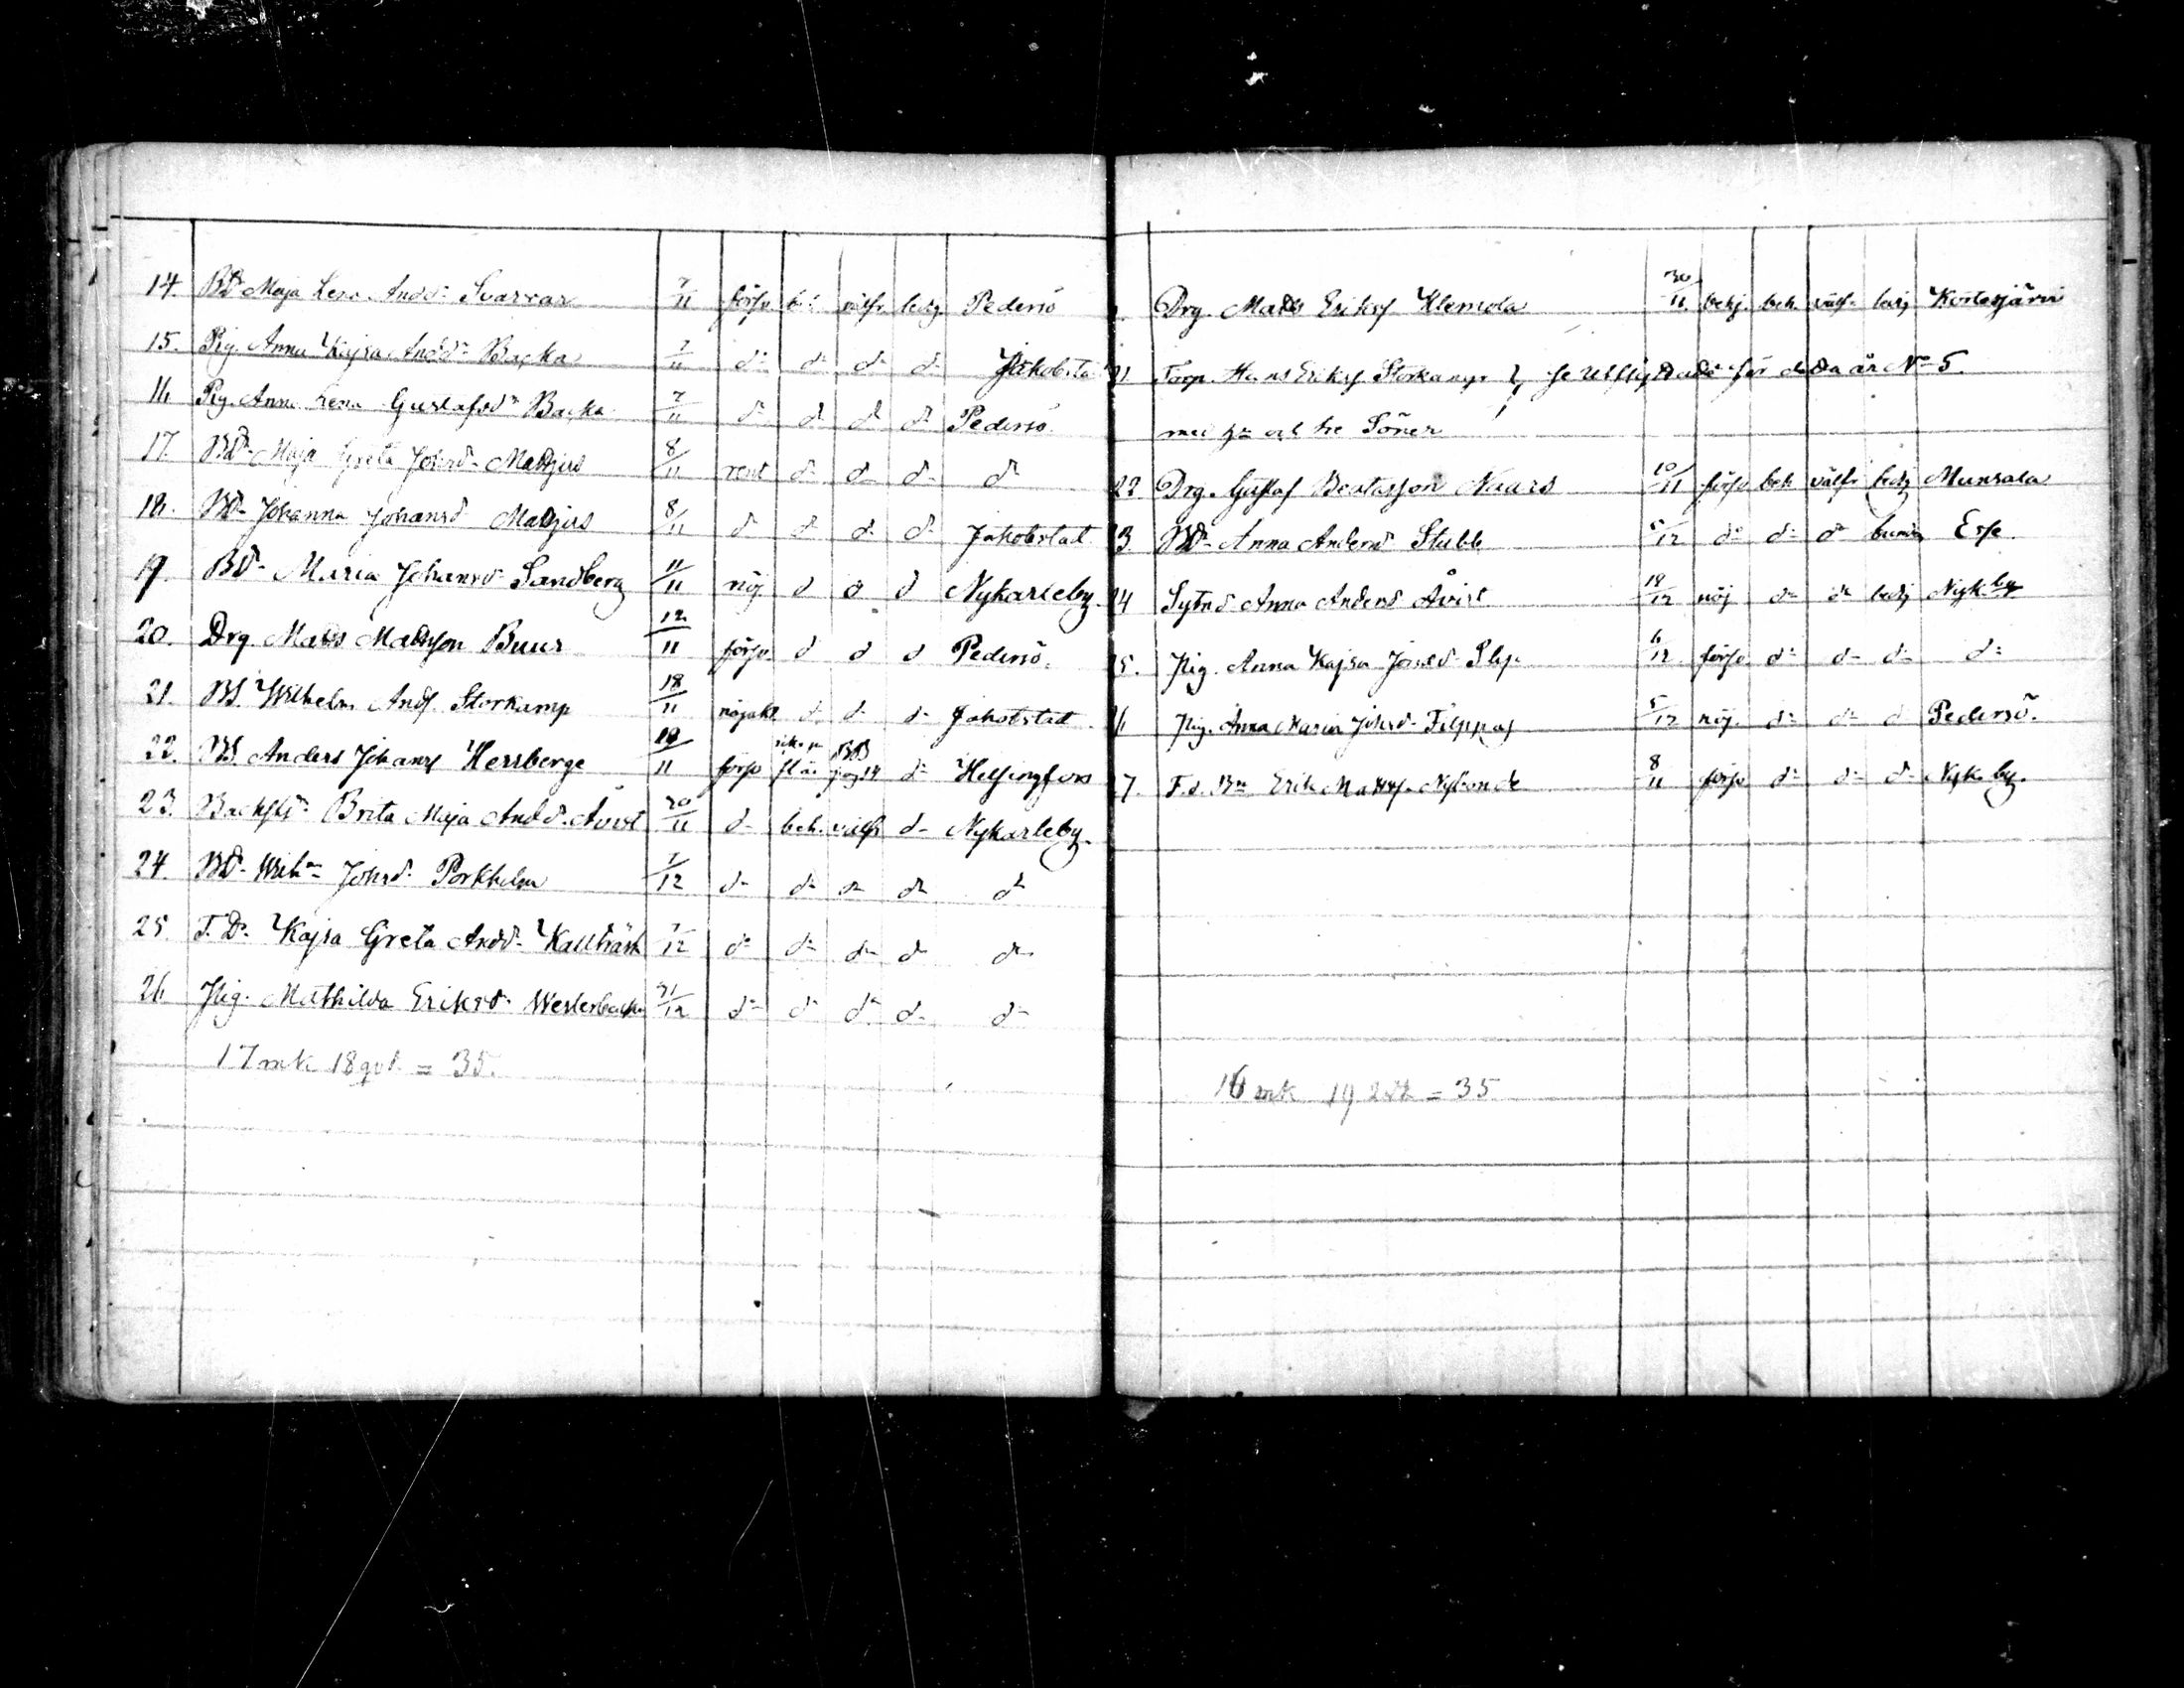 14. BD. Maja Lena Andd. Svarvar 7/11 försv. bek. välfr. ledig Pedersö
15. Pig. Anna Kajsa Andd. Backa 7/11 do do do do Jakobsta
16 Pig. Anna Lena Gustafsdr Backa 7/11 do do do do Pedersö.
17. BD. Maja Greta Johsd. Mattjus 8/11 nöj do do do do
18. BD. Johanna Johansd. Mattjus 8/11 do do do do Jakobstad
19. BD. Maria Johansd. Sandberg 11/11 nöj do do do Nykarleby.
20. Drg. Matts Mattsson Buur 12/11 försv. do do do Pedersö.
21. BS. Wilhelm Andf. Storkamp 18/11 nöjakt do do do Jakobstad
22. BS. Anders Johansf Hersberge 19/11 försv do Helsingfors
23. Brita Maja Andd. Åvist 20/11 do bek. välfr do Nykarleby.
24. BD. Johsd. Porkholm 7/12 do do do do do
25. T.D. Kajsa Greta Andd. Kallträsk 7/12 do do do do do
26 Pig. Mathilda Eriksd. Westerbacka 31/12 do do do do do
17 mk 18 qvk = 35.
Drg. Matts Eriksf. Klemola 30/11 bek. välfr. ledig Kortesjärvi
21 Torp. Hans Eriksf. Storkamp } se Utflyttade för detta år No 5.
med h. och tre Söner
22. Drg. Gustaf Beatasson Naars 10/11 försv bek välfr ledig Munsala
3. BD. Anna Andersd. Stubb 5/12 do do do Esse.
24 Anna Andersd Åvist 19/12 nöj do do ledig Nyk.by
5. Pig. Anna Kajsa Johsd. Slip 6/12 försv do do do do
6 Pig. Anna Maria Johsd. Filppas 5/12 nöj. do do do Pedersö.
7. F.d. Bn Erik Mattsf. Nybonde 8/11 försv do do do Nyk.by.
16 mk 19 qvk = 35